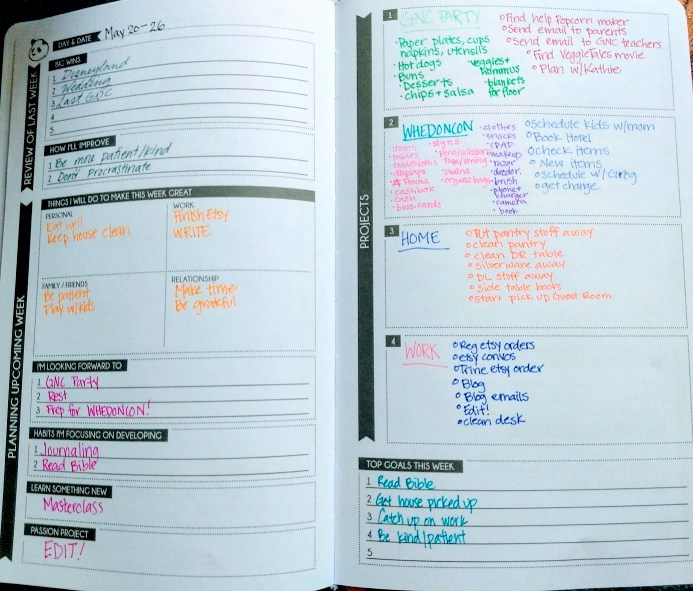 REVIEW OF LAST WEEK
DAY & DATE May 20-26
BIG WINS
1 Disneyland
2 Wedding
3 Last GNC
4
5
HOW I'LL IMPROVE
1 Be more patient/kind
2 Don't Procrastinate
PLANNING UPCOMING WEEK
THINGS I WILL DO TO MAKE THIS WEEK GREAT
PERSONAL
Eat well
Keep house clean
WORK
Finish Etsy
WRITE
FAMILY / FRIENDS
Be patient
Play w/kids
RELATIONSHIP
Make time
Be grateful
I'M LOOKING FORWARD TO
1 GNC Party
2 Rest
3 Prep for WHEDONCON!
HABITS I'M FOCUSING ON DEVELOPING
1 Journaling
2 Read Bible
LEARN SOMETHING NEW
Masterclass
PASSION PROJECT
EDIT!
PROJECTS
1 GNC PARTY
·Paper plates, cups
napkins, utensils
·Hot dogs
·Buns
·Desserts
·chips + salsa
·veggies +
hommus
·blankets
for floor
o Find help Popcorn maker
o Send email to parents
o Send email to GNC teachers
o Find VeggieTales movie
o Plan w/Kathie
2 WHEDONCON
items
tables
tablecloths
displays
cashbox
cash
buss. cards
·signs
·pens/scissors
tape/string
·organza bags
·clothes
·snacks
·CPAP
·makeup
·razor
·deodor.
·brush
·phone +
charger
·camera
·book
o Schedule kids w/mom
o Book Hotel
o check items
o New items
o Schedule w/Greg
o get change
3 HOME
o Put pantry stuff away
o clean pantry
o clean DR table
o silverware away
o DL stuff away
o side table books
o start pick up Guest Room
4 WORK
o Reg etsy orders
o etsy convos
o Trine etsy order
o Blog
o Blog emails
o Edit!
o clean desk
TOP GOALS THIS WEEK
1 Read Bible
2 Get house picked up
3 Catch up on work
4 Be kind/patient
5